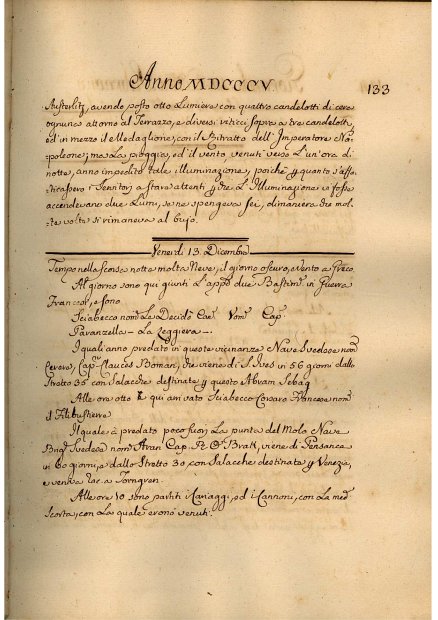 Anno MDCCCV
133
Austerlitz, avendo posto otto Lumiere con quattro candelotti di cera
ognuno attorno al Terrazzo, e diversi viticci sopra a tre candelotti,
ed in mezzo il Medaglione, con il Ritratto dell' Imperatore Na-
poleone; ma La pioggia, ed il vento venuti verso L'un'ora di
notte, anno impedito tale illuminazione, poiche quanto s'affa-
ticassero i Servitori a stare attenti che L'Illuminazione vi fosse
accendevano due Lumi, se ne spengeva sei, di maniera che mol-
te volte si rimaneva al bujo.
Venerdi 13. Dicembre
Tempo nella scorsa notte molta Neve, il giorno oscuro, e vento a Greco.
Al giorno sono qui giunti L'appo due Bastimti in Guerra
Francesi, e sono
Sciabecco nomo Le Decide Cap.
Paranzella - La Leggiera -
I quali anno predato in queste vicinanze Nave Svedese nomo
Cerere, Capn Claues Boman, che viene di S. Ives in 56 giorni dallo
Stretto 35 con Salacche destinate questo Abram Sebag
Alle ore otto è qui arrivato Sciabecco Corsaro Francese nomo
il Filibustiere
Il quale à predato poco fuori La punta del Molo Nave
Svedese nomo Aran Cap. P. O. Bratt, viene di Pensance
in 60 giorni, e dallo Stretto 30, con Salacche destinata Venezia,
e veniva a Torngren.
Alle ore 10 sono partiti i Cariaggi, ed i Cannoni, con La medo
Scorta, con La quale erono venuti.